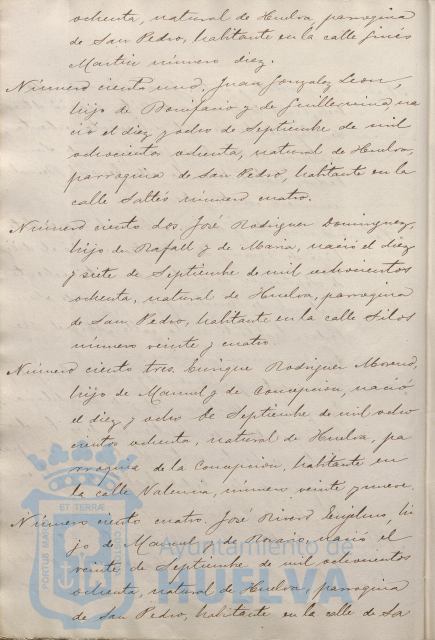 ochenta, natural de Huelva, parroquia
de San Pedro, habitante en la calle Ginés
Martin número diez.
Número ciento uno. Juan Gonzalez Leon,
hijo de Bonifacio y de Guillermina, na
ció el diez y ocho de Septiembre de mil
ochocientos ochenta, natural de Huelva,
parroquia de San Pedro, habitante en la
calle Saltés número cuatro.
Número ciento dos. José Rodriguez Dominguez,
hijo de Rafael y de Maria, nació el diez
y siete de Septiembre de mil ochocientos
ochenta, natural de Huelva, parroquia
de San Pedro, habitante en la calle Silos
número veinte y cuatro.
Número ciento tres. Enrique Rodriguez Moreno,
hijo de Manuel y de Concepcion, nació
el diez y ocho de Septiembre de mil ocho
cientos ochenta, natural de Huelva, pa
rroquia de la Concepcion, habitante en
la calle Valencia, número veinte y nueve.
Número ciento cuatro. José Rivero, hi
jo de Manuel y de Rosario, nació el
veinte de Septiembre de mil ochocientos
ochenta, natural de Huelva, parroquia
de San Pedro, habitante en la calle de Sa
ET TERRÆ
PORTUS MARIS
CUSTODIA
Ayuntamiento de
HUELVA